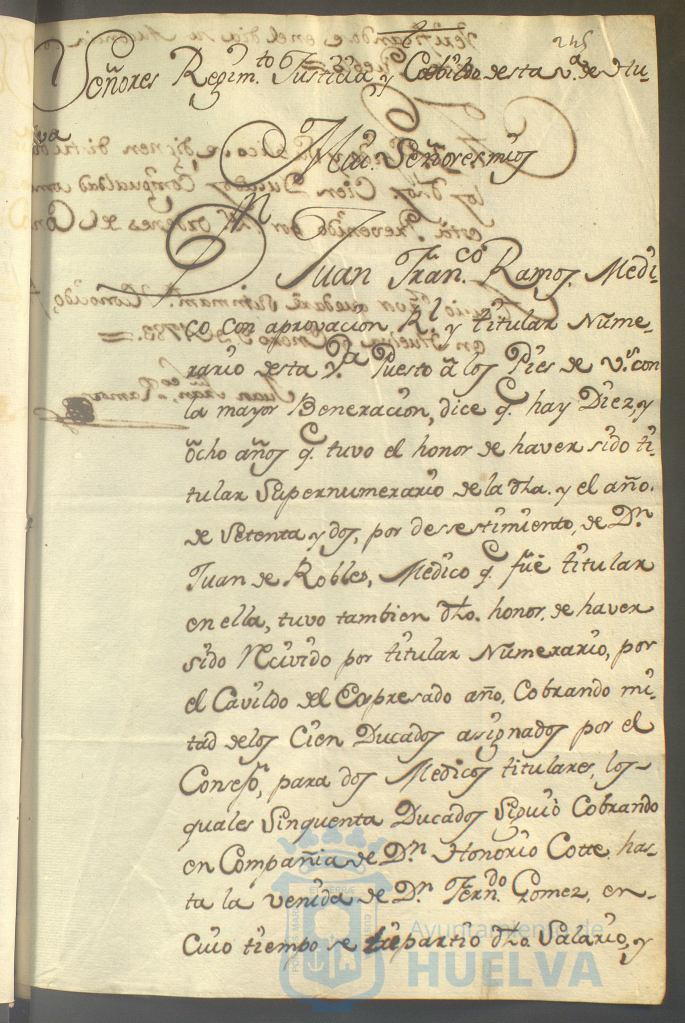 245
Señores Regim.to Justicia y Cabildo desta v.a de Huelva
Mui Señores mios
Juan Fran.co Ramos, Medi-
co, con aprovacion R.l y titular Nume-
rario desta V.a Puesto â los Pies de V.s con
la mayor Beneracion, dice q. hay Diez, y
ôcho años q. tuvo el honor de haver sido ti-
tular Supernumerario de la dha. y el año.
de Setenta y dos, por dessestimiento, de D.n
Juan de Robles, Medico q. fuê titular
en ella, tuvo tambien dho. honor, de haver
sido Recivido por titular Numerario, por
el Cavildo del Expresado año, Cobrando mi-
tad delos Cien Ducados asignados por el
Consejo, para dos Medicos titulares, los-
quales Sinquenta Ducados Siguio Cobrando
en Compañia de D.n Honorio Cotte, has-
ta la venida de D.n Fern.do Gomez, en-
Cuio tiempo se repartio dho. Salario, y
Ayuntamiento de
HUELVA